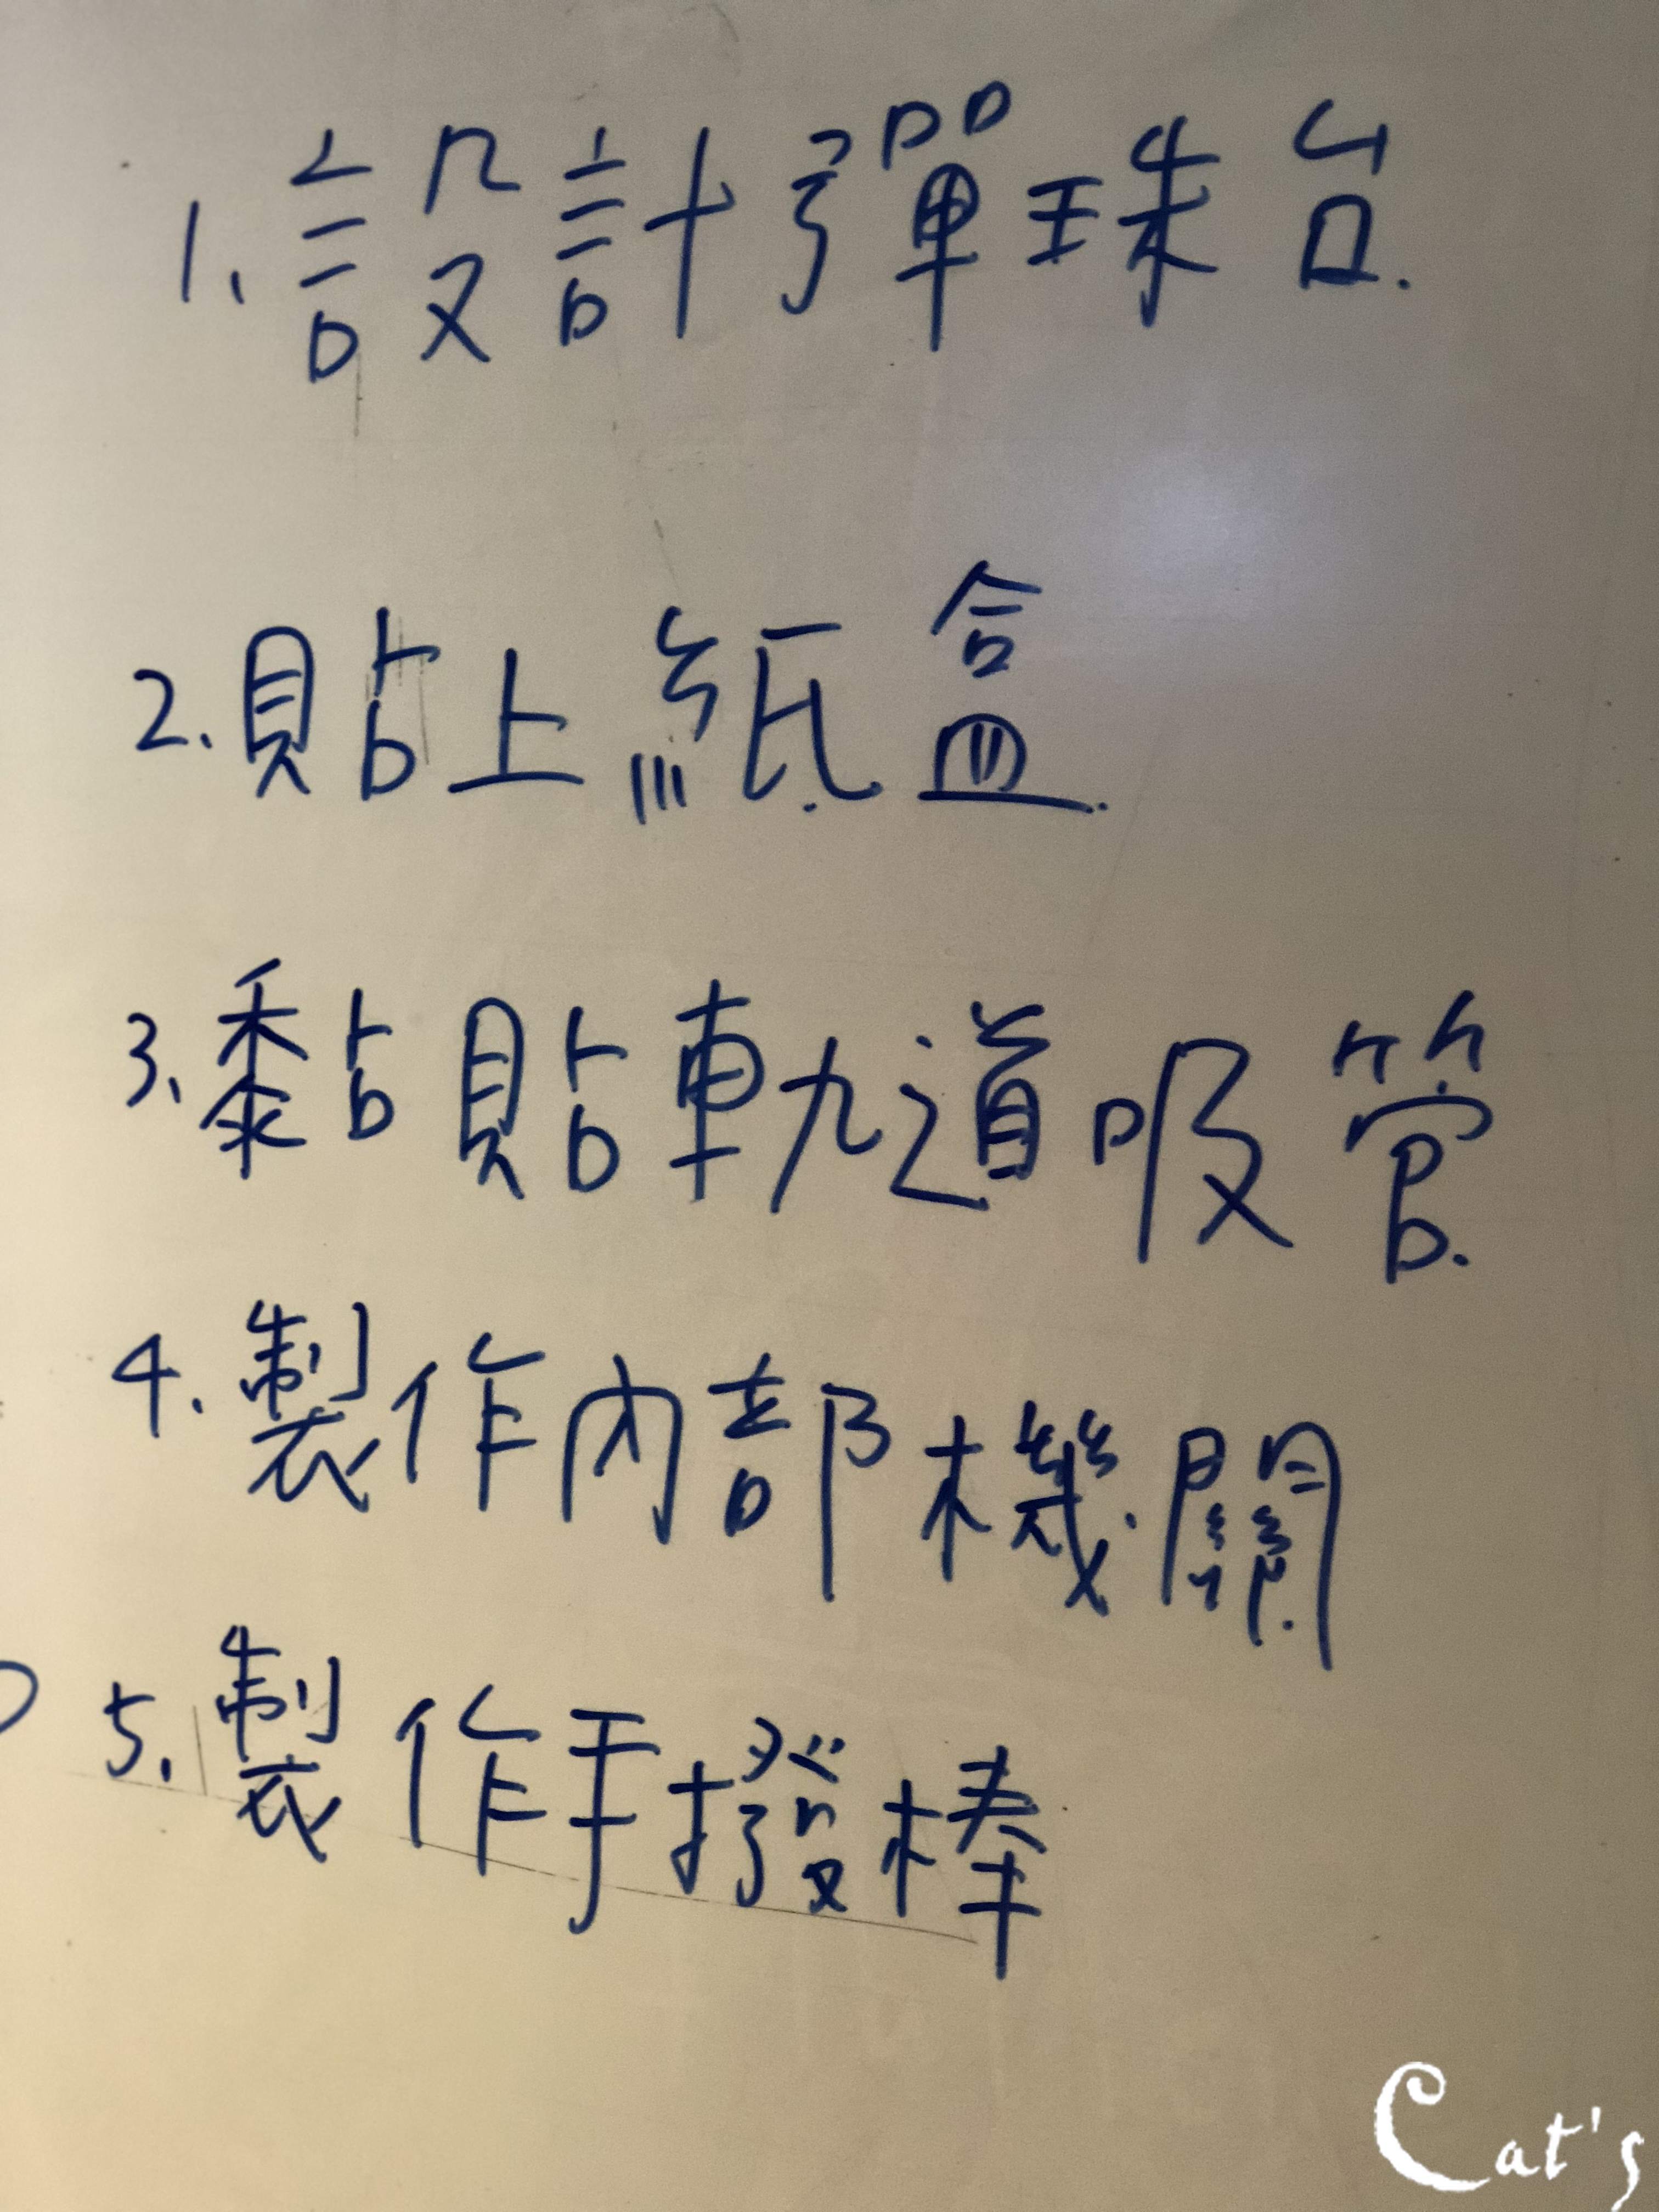 1. 設計彈珠台.
2. 貼上紙盒.
3. 黏貼軌道吸管.
4. 製作內部機關
5. 製作手撥棒
Cat's